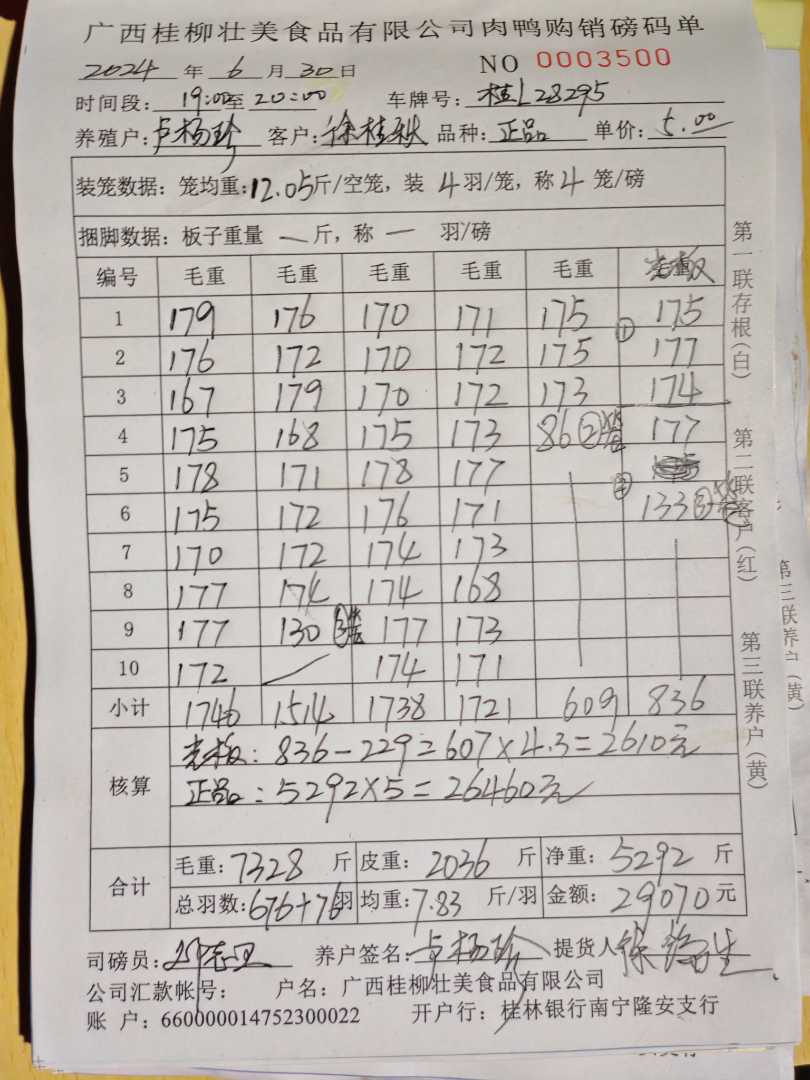 广西桂柳壮美食品有限公司肉鸭购销磅码单
2024 年 6 月 30 日 NO 0003500
时间段: 19:00 至 20:00 车牌号: 桂L28295
养殖户: 卢杨珍 客户: 徐桂秋 品种: 正品 单价: 5.00
装笼数据: 笼均重: 12.05斤/空笼, 装 4 羽/笼, 称 4 笼/磅
捆脚数据: 板子重量 一 斤, 称 一 羽/磅
编号 毛重 毛重 毛重 毛重 毛重
1 179 176 170 171 175 ① 175
2 176 172 170 172 175 177
3 167 179 170 172 173 174
4 175 168 175 173 86 ②笼 177
5 178 171 178 177
6 175 172 176 171 133 ③笼
7 170 172 174 173
8 177 174 174 168
9 177 130 ③笼 177 173
10 172 174 171
小计 1746 1514 1738 1721 609 836
核算
836-229=607×4.3=2610元
正品: 5292×5=26460元
合计
毛重: 7328 斤 皮重: 2036 斤 净重: 5292 斤
总羽数: 676+76羽 均重: 7.83 斤/羽 金额: 29070 元
司磅员: 养户签名: 卢杨珍 提货人 徐
公司汇款帐号: 户名: 广西桂柳壮美食品有限公司
账 户: 660000014752300022 开户行: 桂林银行南宁隆安支行
第一联存根(白)
第二联客户(红)
第三联养户(黄)
第三联养户(黄)